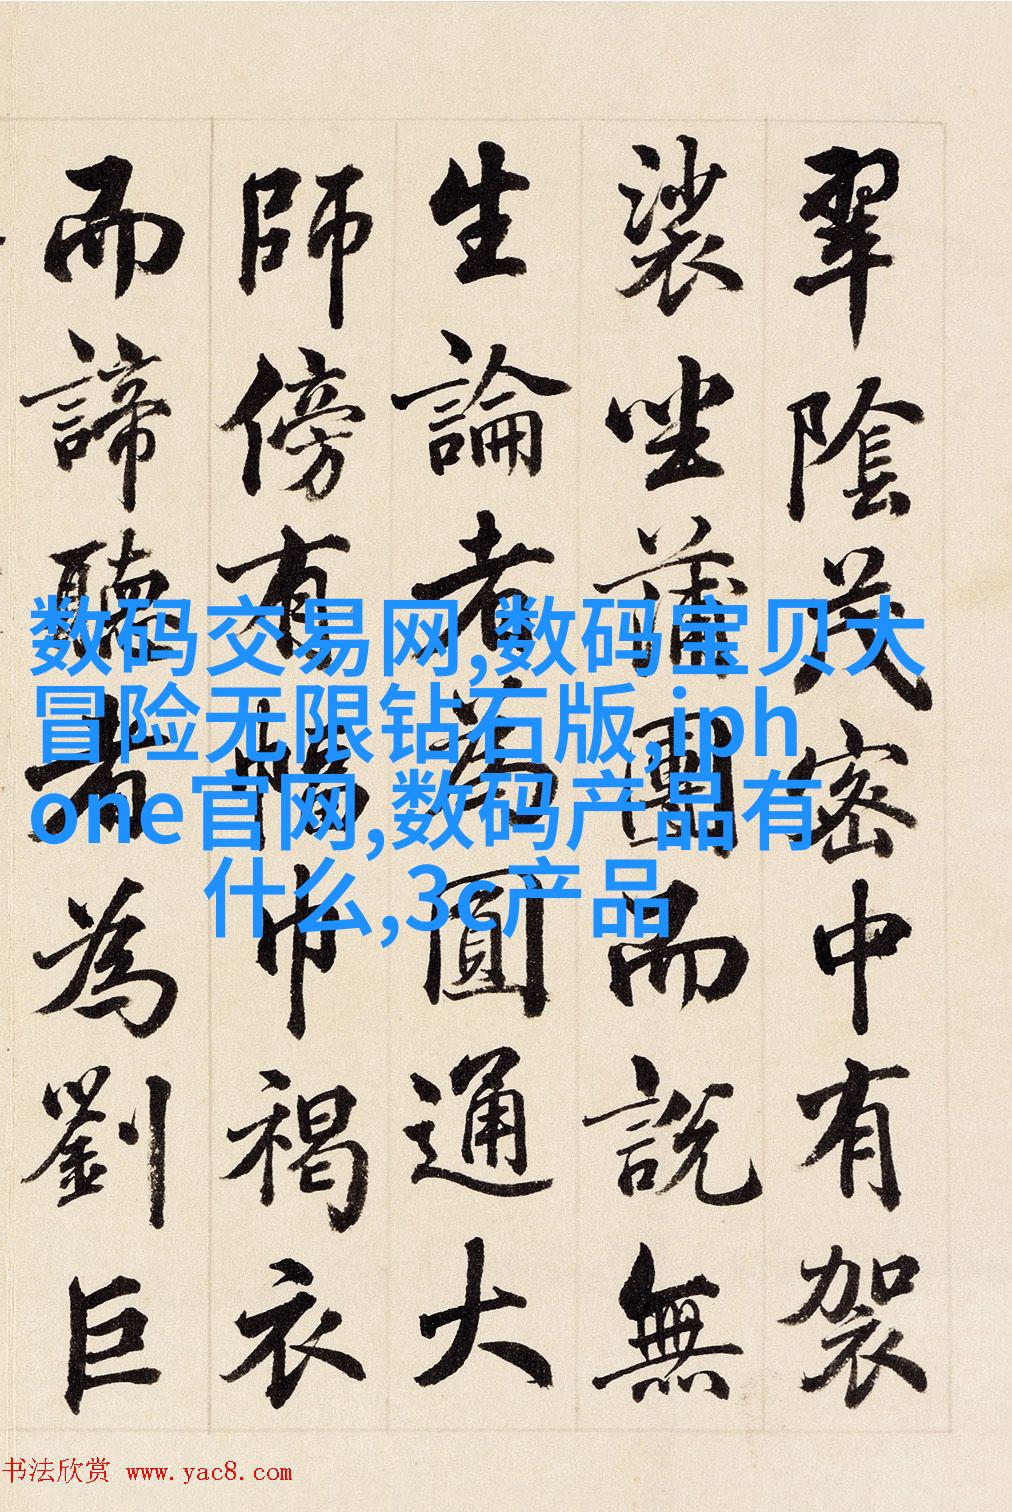 翠陰茂密中有袈
裟坐蒲團而說無
生論者為圓通大
師傍有幅巾褐衣
而諦聽者為劉巨
数码交易网,数码宝贝大
冒险无限钻石版,iph
one官网,数码产品有
什么,3c产品
书法欣赏 www.yac8.com